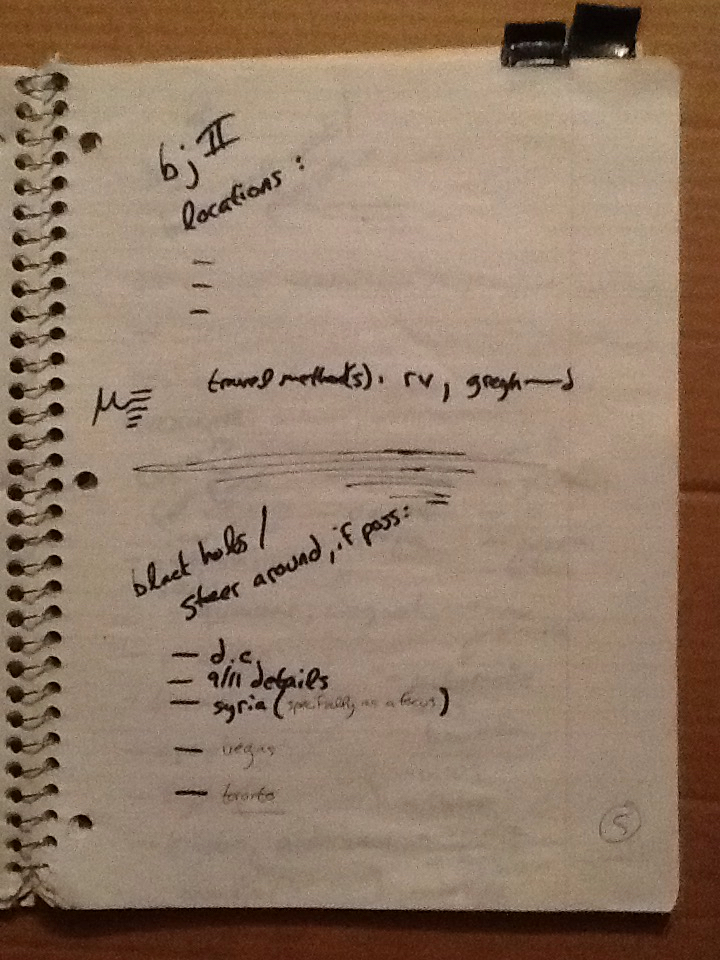 bj II
locations:
–
–
–
travel method(s). rv, greyh—d
μ
black holes /
steer around, if poss:
– d.c.
– 9/11 details
– syria (specifically as a focus)
– vegas
– toronto
5